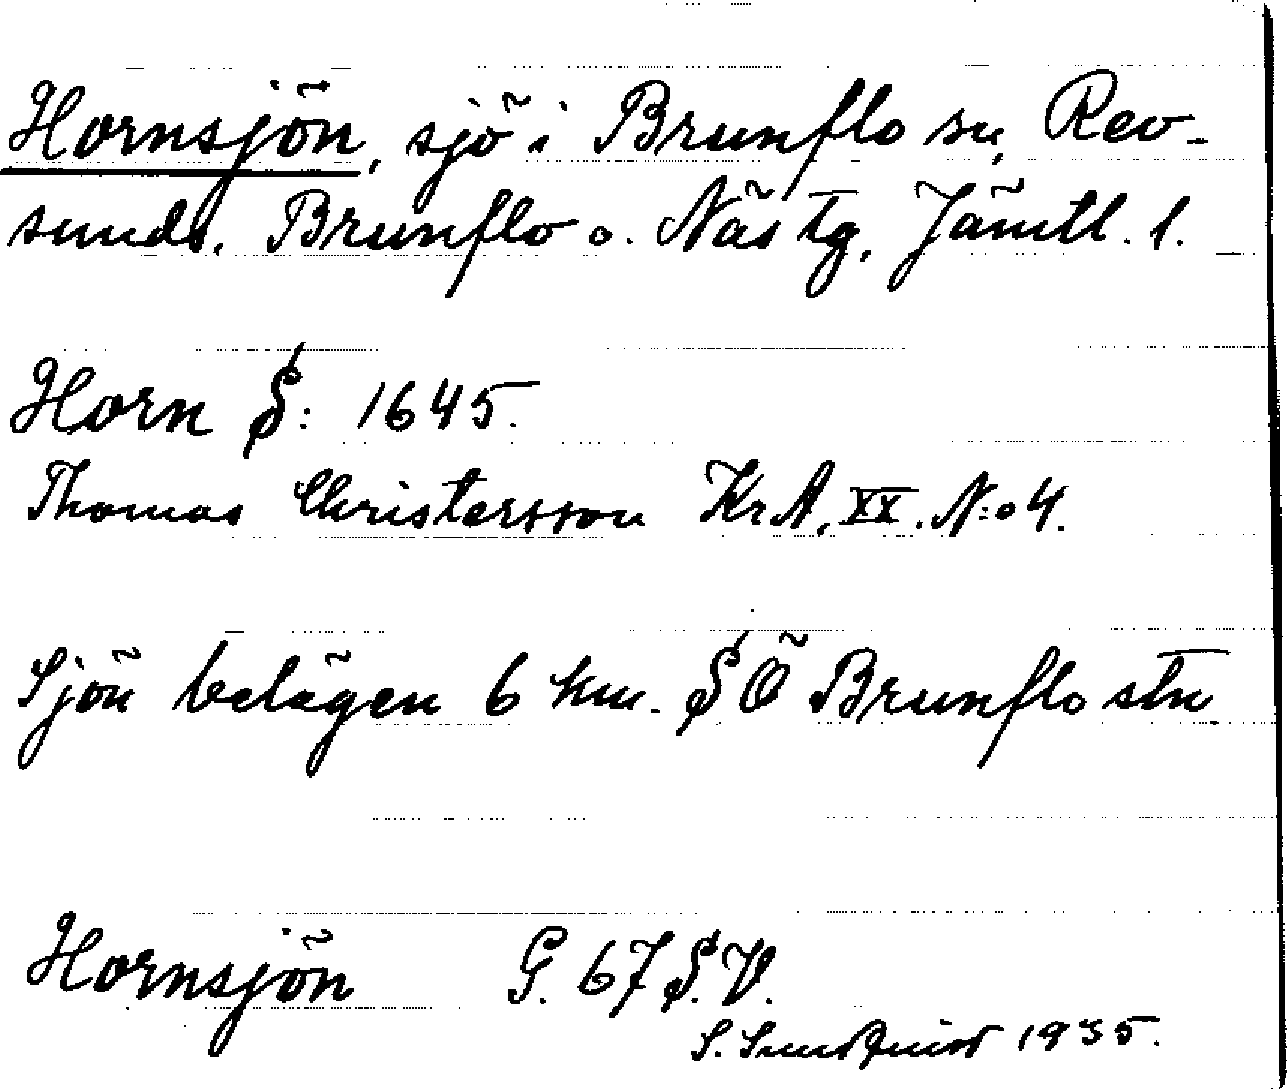 Hornsjön, sjö i Brunflo sn, Rev-
sunds, Brunflo o. Näs tg, Jämtl. l.
Horn S: 1645.
Thomas Christersson KrA, XX. N:o 4.
Sjön belägen 6 km. SÖ Brunflo stn
Hornsjön G. 67 S.V.
S. Sundquist 1935.